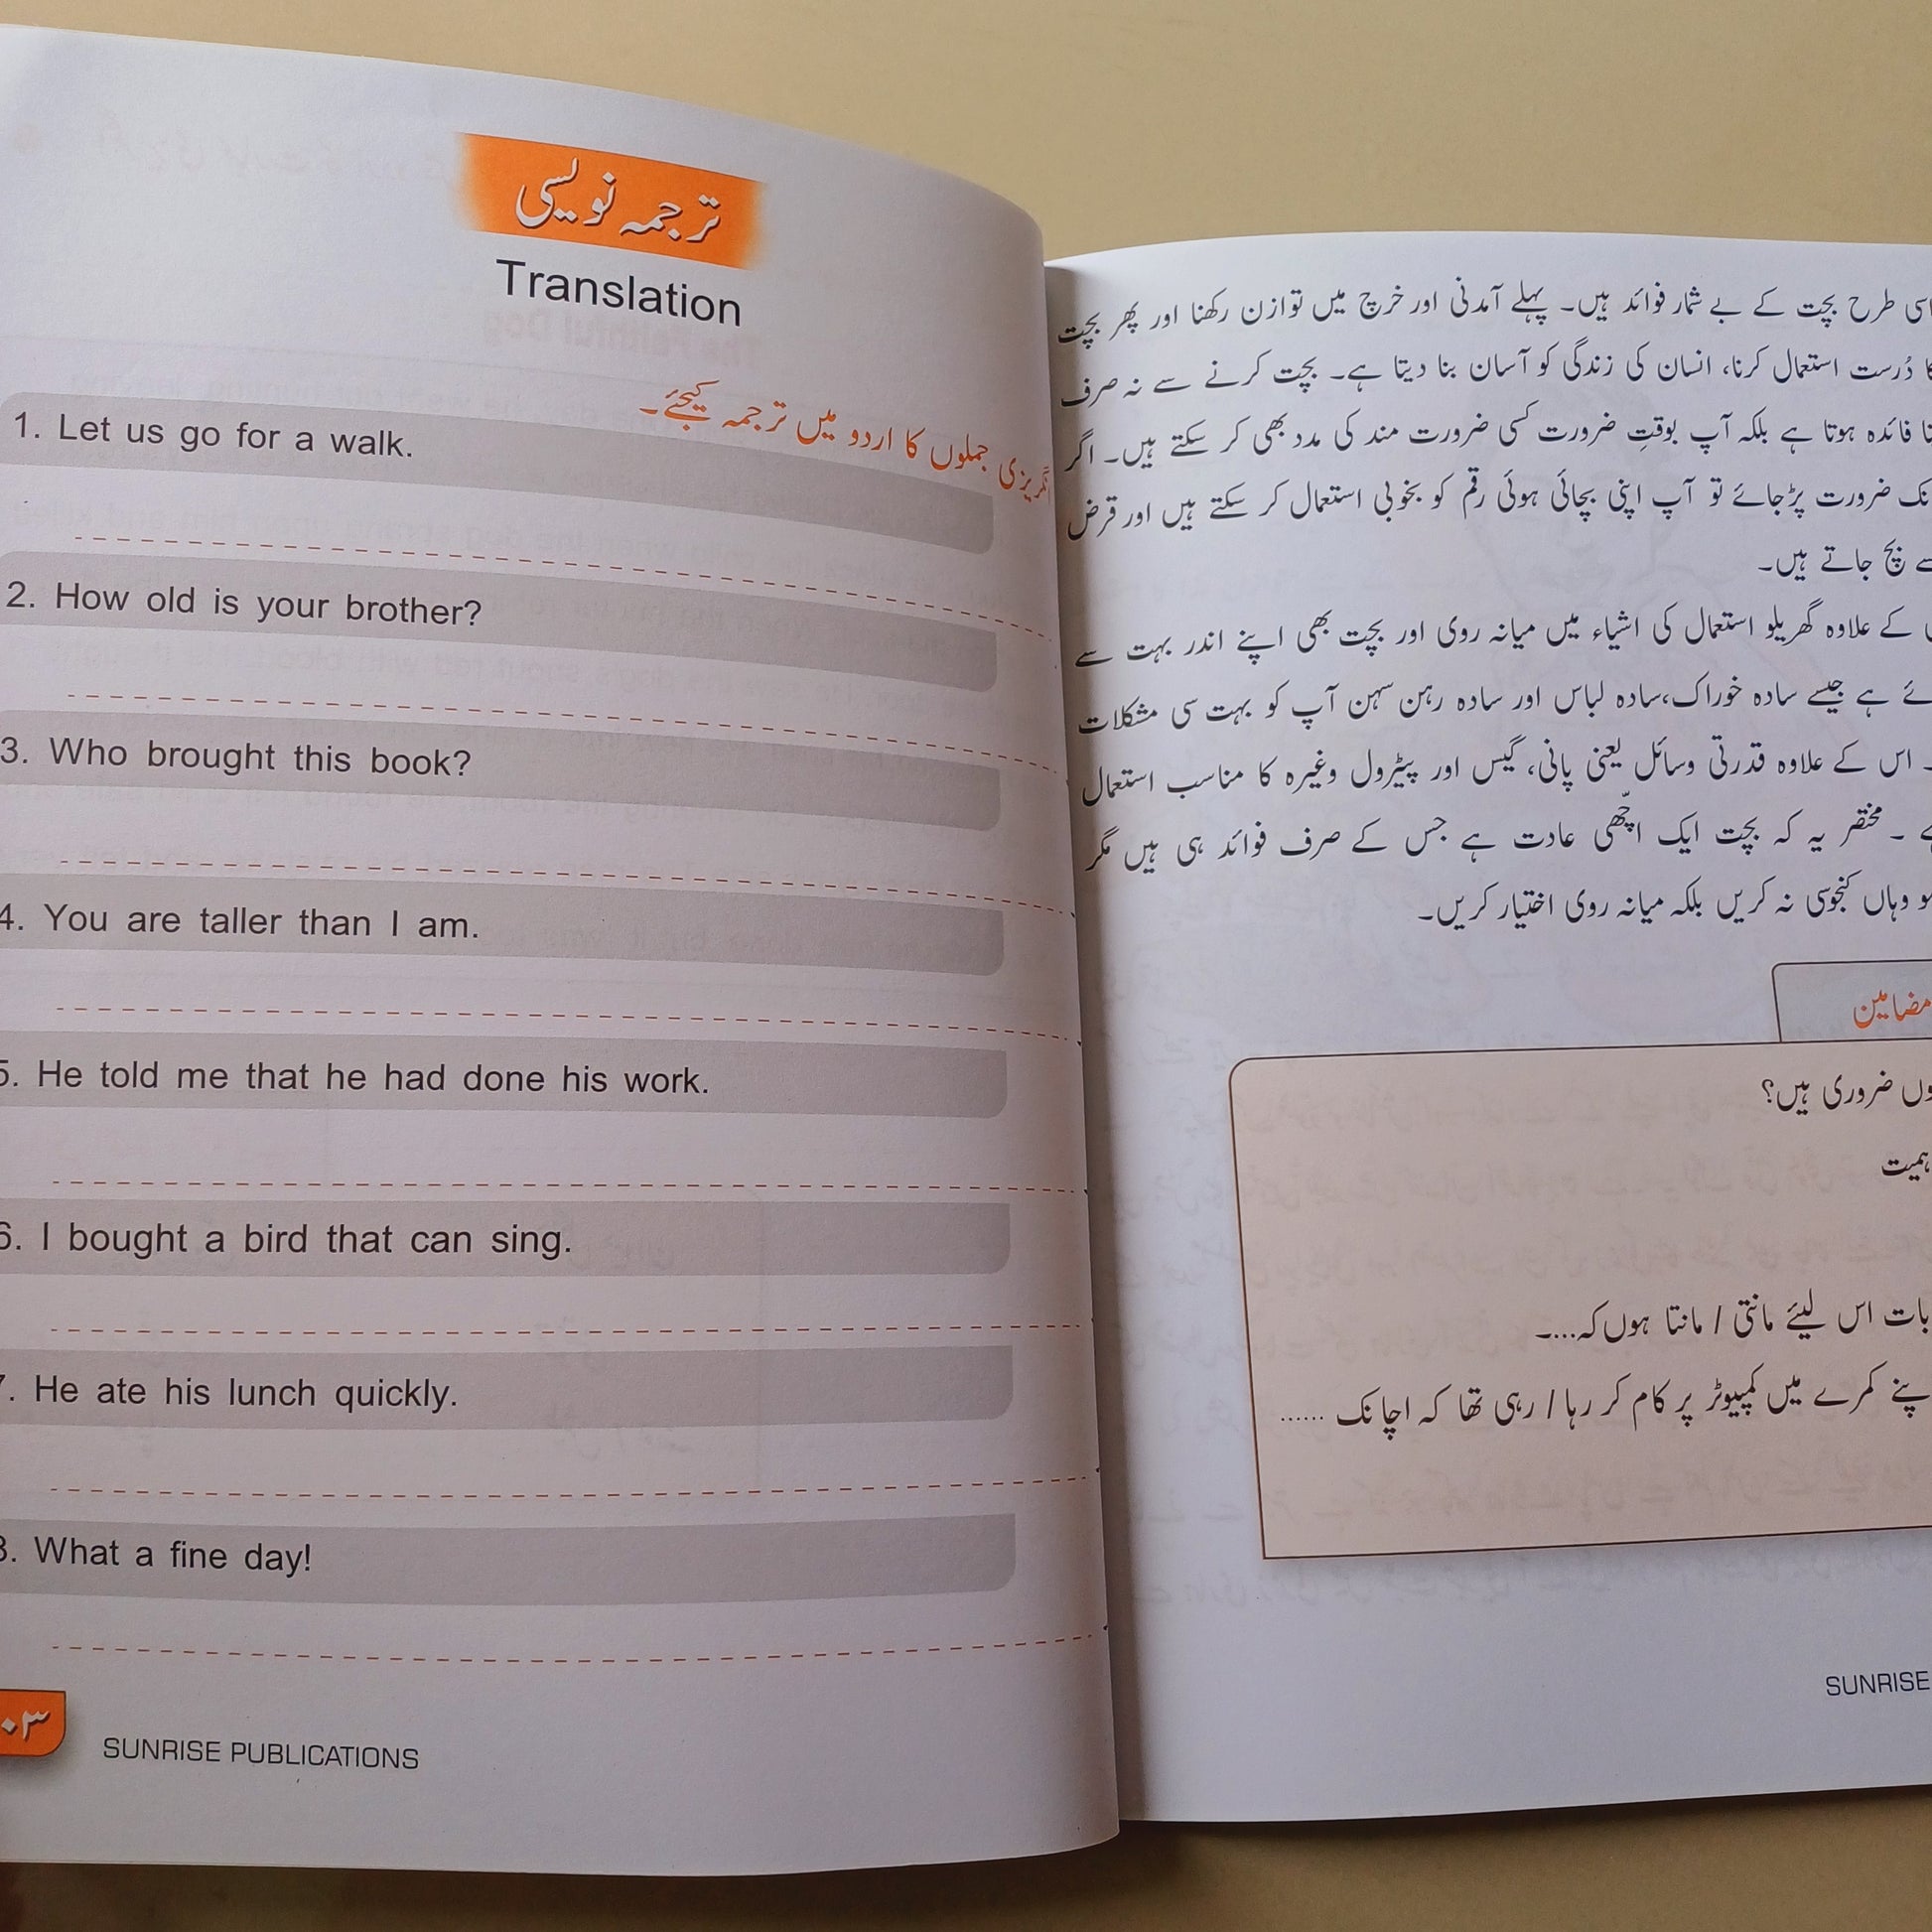 ترجمہ نویسی
Translation
انگریزی جملوں کا اردو میں ترجمہ کیجئے۔
1. Let us go for a walk.
2. How old is your brother?
3. Who brought this book?
4. You are taller than I am.
5. He told me that he had done his work.
6. I bought a bird that can sing.
7. He ate his lunch quickly.
8. What a fine day!
۰۳
SUNRISE PUBLICATIONS
اسی طرح بچت کے بے شمار فوائد ہیں۔ پہلے آمدنی اور خرچ میں توازن رکھنا اور پھر بچت
کا دُرست استعمال کرنا، انسان کی زندگی کو آسان بنا دیتا ہے۔ بچت کرنے سے نہ صرف
فائدہ ہوتا ہے بلکہ آپ بوقتِ ضرورت کسی ضرورت مند کی مدد بھی کر سکتے ہیں۔ اگر
ضرورت پڑجائے تو آپ اپنی بچائی ہوئی رقم کو بخوبی استعمال کر سکتے ہیں اور قرض
سے بچ جاتے ہیں۔
کے علاوہ گھریلو استعمال کی اشیاء میں میانہ روی اور بچت بھی اپنے اندر بہت سے
ہے جیسے سادہ خوراک،سادہ لباس اور سادہ رہن سہن آپ کو بہت سی مشکلات
۔ اس کے علاوہ قدرتی وسائل یعنی پانی، گیس اور پیٹرول وغیرہ کا مناسب استعمال
۔ مختصر یہ کہ بچت ایک اچّھی عادت ہے جس کے صرف فوائد ہی ہیں مگر
وہاں کنجوسی نہ کریں بلکہ میانہ روی اختیار کریں۔
مضامین
ضروری ہیں؟
ہمیت
بات اس لیئے مانتی / مانتا ہوں کہ...۔
پنے کمرے میں کمپیوٹر پر کام کر رہا / رہی تھا کہ اچانک ......
SUNRISE